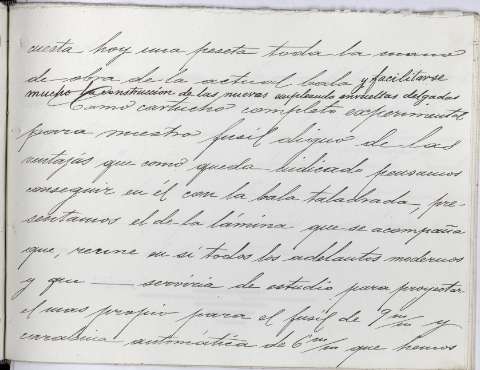 cuesta hoy una peseta toda la mano
de obra de la actual bala y facilitarse
mucho la construccion de las nuevas empleando envueltas delgadas
Como cartucho completo experimental
para nuestro fusil digno de las
ventajas que como queda indicado pensamos
conseguir en él con la bala taladrada, pre-
sentamos el de la lámina que se acompaña
que, reune en si todos los adelantos modernos
y que — serviria de estudio para proyectar
el mas propio para el fusil de 7 m/m y
carabina automática de 6 m/m que hemos